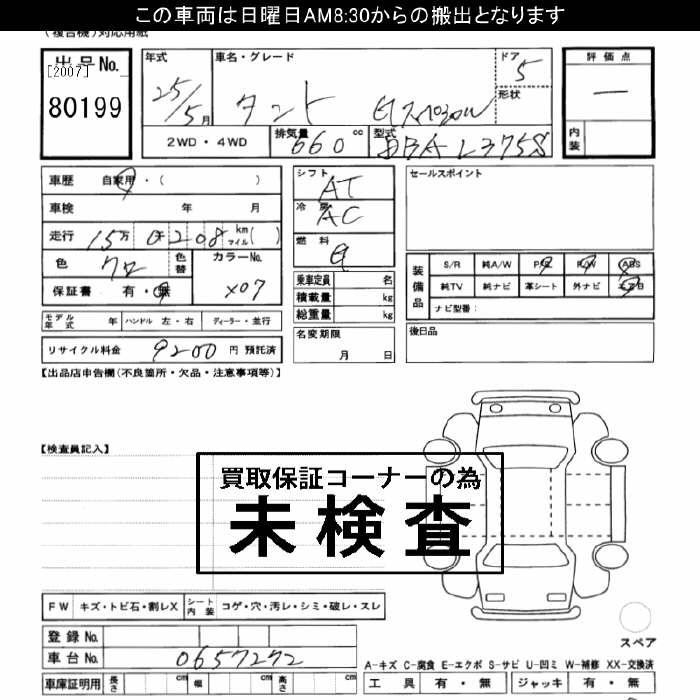 この車両は日曜日AM8:30からの搬出となります
(複合機)対応用紙
出品No.
[2007]
80199
年式
25/5月
車名・グレード
タント
ドア
5
形状
2WD・4WD
排気量
660 cc
型式
DBA L375S
評価点
一
内装
車歴 自家用・( )
車検 年 月
走行 15万 0208 km マイル( )
色 クロ
色替
カラーNo.
X07
保証書 有・無
モデル年式 年
ハンドル 左・右
ディーラー・並行
リサイクル料金 9200 円 預託済
シフト
AT
冷房
AC
燃料
乗車定員 名
積載量 kg
総重量 kg
名変期限
月 日
セールスポイント
装備品
S/R 純A/W P/S P/W ABS
純TV 純ナビ 革シート 外ナビ エアB
ナビ型番:
後日品
【出品店申告欄(不良箇所・欠品・注意事項等)】
【検査員記入】
買取保証コーナーの為
未検査
FW キズ・トビ石・割レX
シート内装 コゲ・穴・汚レ・シミ・破レ・スレ
登録No.
車台No. 0657272
車庫証明用 長さ cm 幅 cm 高さ cm
スペア
A-キズ C-腐食 E-エクボ S-サビ U-凹ミ W-補修 XX-交換済
工具 有・無 ジャッキ 有・無